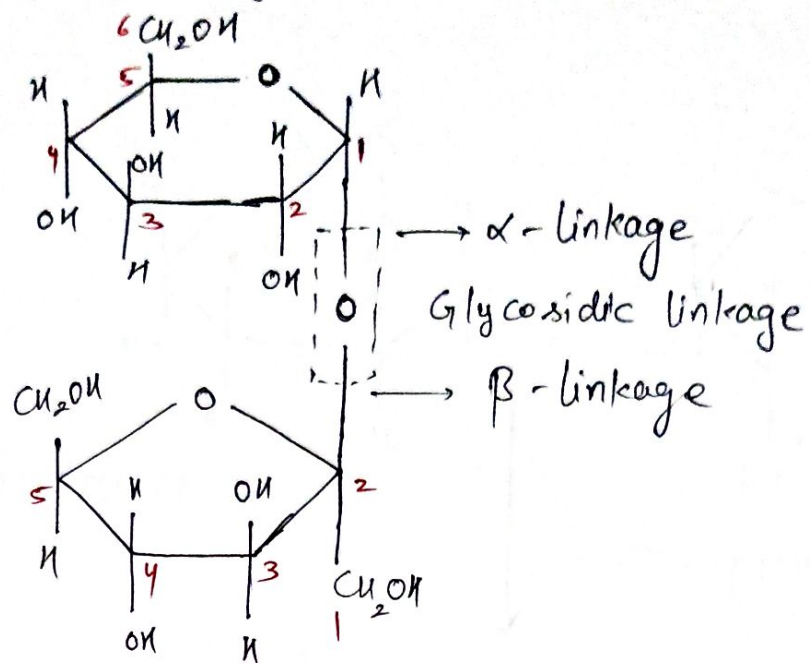 6 CH₂OH
5 O H
H H H
4 OH 1
OH 3 2
H OH
α - linkage
O Glycosidic linkage
β - linkage
CH₂OH O
5 H OH 2
H 4 3 CH₂OH
1
OH H